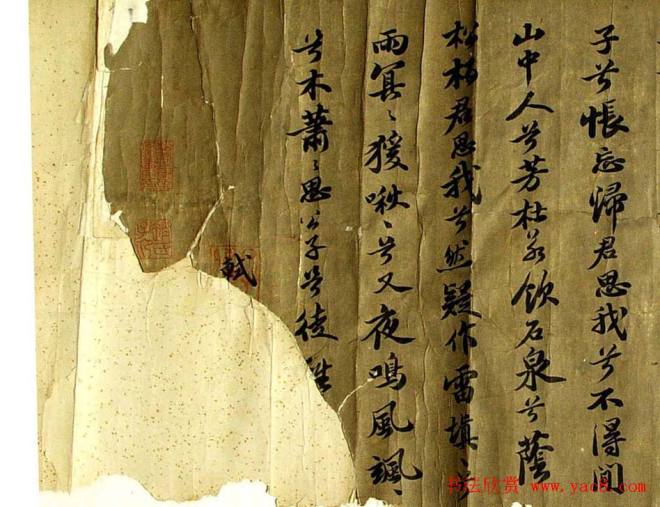 子兮悵忘歸君思我兮不得閒
山中人兮芳杜若飲石泉兮蔭
松柏君思我兮然疑作雷填〻
雨冥〻猨啾〻兮又夜鳴風颯〻
兮木蕭〻思公子兮徒
軾
书法欣赏 www.yac8.com